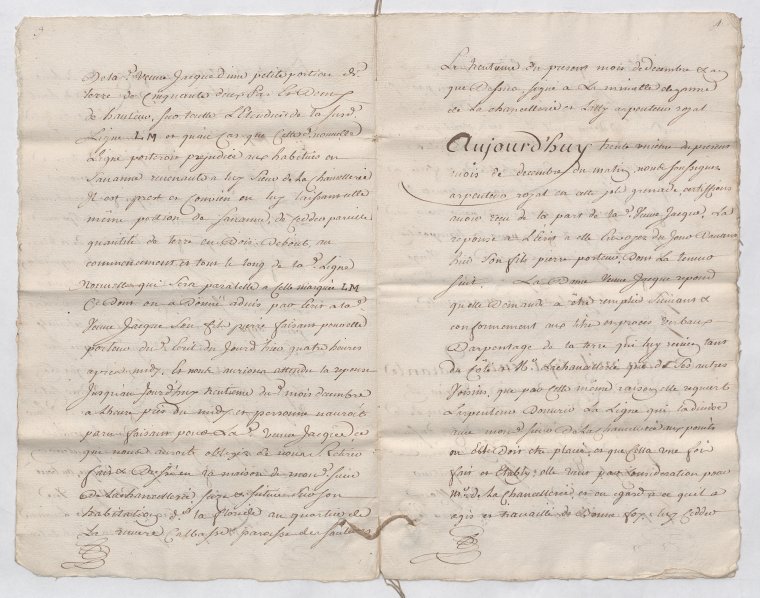 De la d. Veuve Jacque d'une petite portion de
terre de cinquante deux Pas
de hauteur, sur toutte L'Etendüe de la susd.
Ligne LM et qu'au cas que cette d. nouvelle
Ligne porteroit prejudice aux habituës en
Savanne revenante a luy Sieur de la Chancellerie
Il est prest et convien en luy laissant elle
même portion de savanne, de ceder pareille
quantité de terre en Bois Debout, au
commencement et tout le long de la d. Ligne
nouvelle qui sera paralelle a celle marquée LM
Ce Dont on a Donné aduis par Ecrit a la d.
Veuve Jacque son fils pierre faisant pour elle
porteur du d. Ecrit du Jourd'hier quatre heures
apres midy. Et nous aurions attendu la reponse
Jusqu'au Jourd'huy trentieme du d. mois decembre
a L'heure pres du midy et personne n'auroit
paru faisant pour La d. Veuve Jacque ce
que nous auroit obligez de nous
fait & Dressé en la maison de mond. Sieur
De Lachancellerie, size et situee sur son
habitation de la fionde au quartier de
La riviere Calbasse paroisse de
4
Le trentieme du present mois de decembre & a
que Dessus signé a La minutte
de La chancellerie et Lilly arpenteur royal
Aujourd'huy trente unieme du present
mois de decembre du matin nous soussigné
arpenteur royal en cette isle grenade certiffions
avoir reçu de la part de la d. Veuve Jacque, La
reponse a L'Ecrit a elle Envoyez du Jour D'avant
hier son fils pierre porteur, Dont La teneur
suit. La Dame Veuve Jacque repond
qu'elle Demande a être remplie suivant &
conformement aux titre et proces verbaux
D'arpentage de la terre qui luy revien tant
du Côté Mr. Lachancellerie que de ses autres
Voisins, que par cette même raison elle requert
L'arpenteur D'ouvrir La Ligne qui la divise
avec mond. sieur de La chancellerie aux points
ou Elle Doit être placée et que cella une foi
fait et Etably; elle veut par consideration pour
Mr. de La Chancellerie et en egard a ce qu'il a
agis et travaillé de Bonne foy, luy Ceder